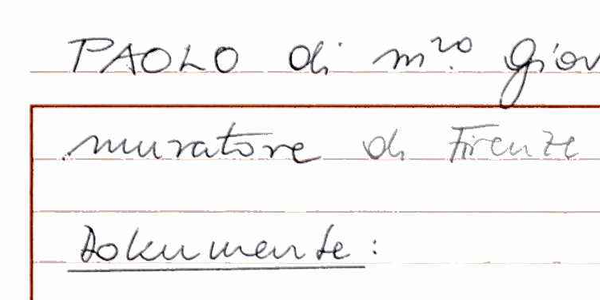 PAOLO di m.ro Giov
muratore di Firenze
Dokumente: